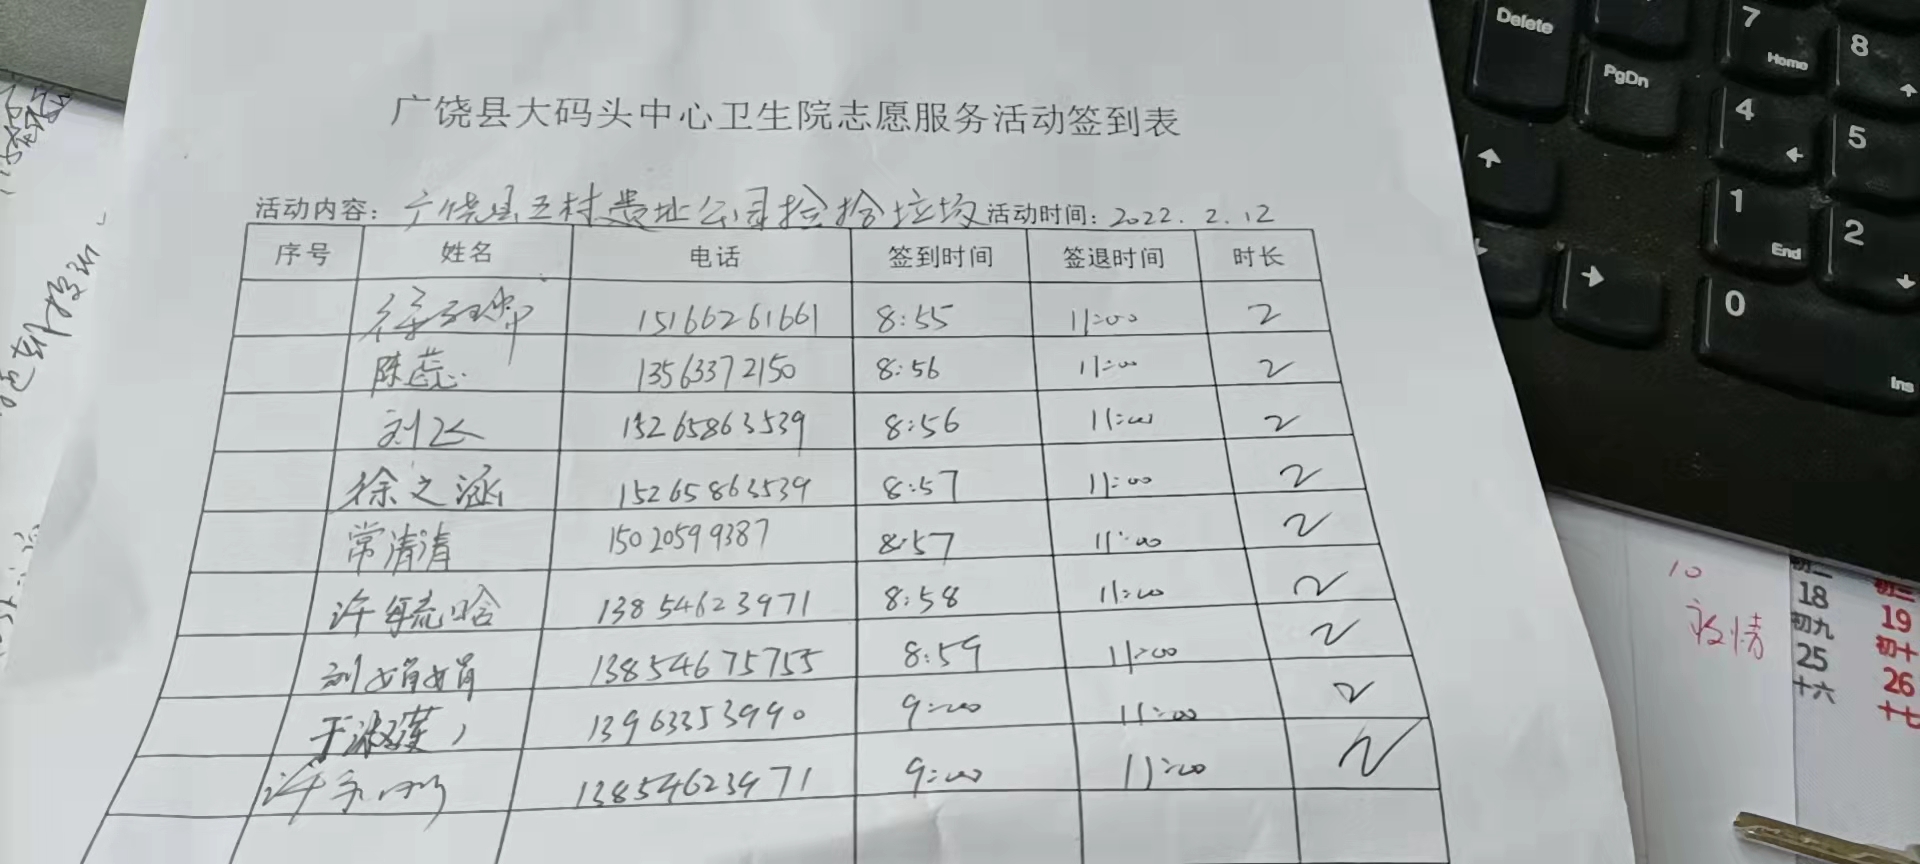 广饶县大码头中心卫生院志愿服务活动签到表
活动内容：广饶县五村遗址公司捡拾垃圾 活动时间：2022.2.12
序号 姓名 电话 签到时间 签退时间 时长
15166261661 8:55 11:00 2
陈蕊 13563372150 8:56 11:00 2
刘飞 15265863539 8:56 11:00 2
徐之涵 15265863539 8:57 11:00 2
常清清 15020599387 8:57 11:00 2
许毓晗 13854623971 8:58 11:00 2
刘娟娟 13854675755 8:59 11:00 2
于淑莲 13963353990 9:00 11:00 2
许 13854623971 9:00 11:00 2
Delete
PgDn
7 Home
8
4
5
1 End
2
0 Ins
10
疫情
初二 初三
18 19
初九 初十
25 26
十六 十七